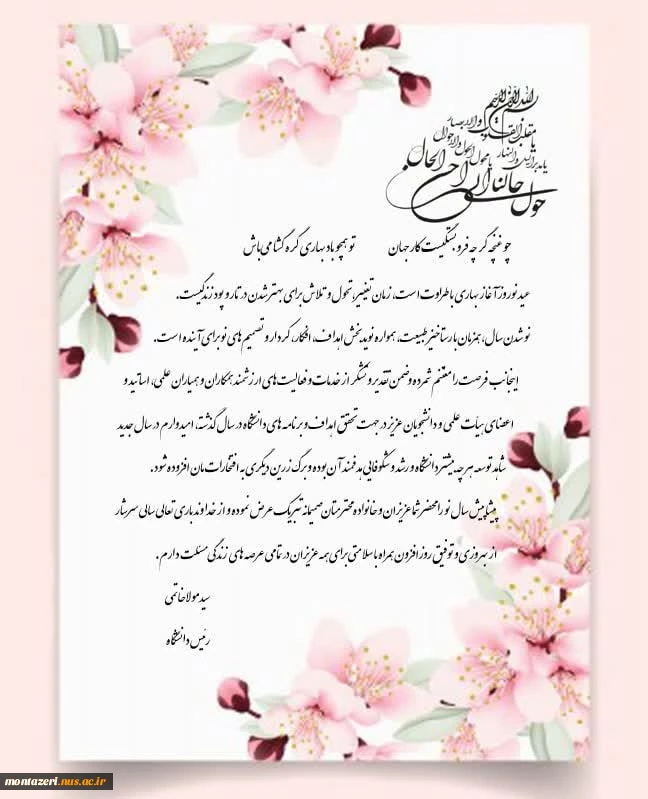 بسم الله الرحمن الرحیم
یا مقلب القلوب والابصار
یا مدبر اللیل والنهار
یا محول الحول والاحوال
حول حالنا الی احسن الحال
چو غنچه گرچه فروبستگیست کار جهان تو همچو باد بهاری گره گشا می باش
عید نوروز آغاز بهاری با طراوت است، زمان تغییر، تحول و تلاش برای بهتر شدن در تار و پود زندگیست.
نو شدن سال، همزمان با رستاخیز طبیعت، همواره نوید بخش اهداف، افکار، کردار و تصمیم های نو برای آینده است.
اینجانب فرصت را مغتنم شمرده و ضمن تقدیر و تشکر از خدمات و فعالیت های ارزشمند همکاران و همیاران علمی، اساتید و
اعضای هیأت علمی و دانشجویان عزیز در جهت تحقق اهداف و برنامه های دانشگاه در سال گذشته، امیدوارم در سال جدید
شاهد توسعه هر چه بیشتر دانشگاه و رشد و شکوفایی هدفمند آن بوده و برگ زرین دیگری به افتخاراتمان افزوده شود.
پیشاپیش سال نو را محضر شما عزیزان و خانواده محترمتان صمیمانه تبریک عرض نموده و از خداوند باری تعالی سالی سرشار
از بهروزی و توفیق روز افزون همراه با سلامتی برای همه عزیزان در تمامی عرصه های زندگی مسئلت دارم.
سید مولا خاتمی
رئیس دانشگاه
montazeri.nus.ac.ir